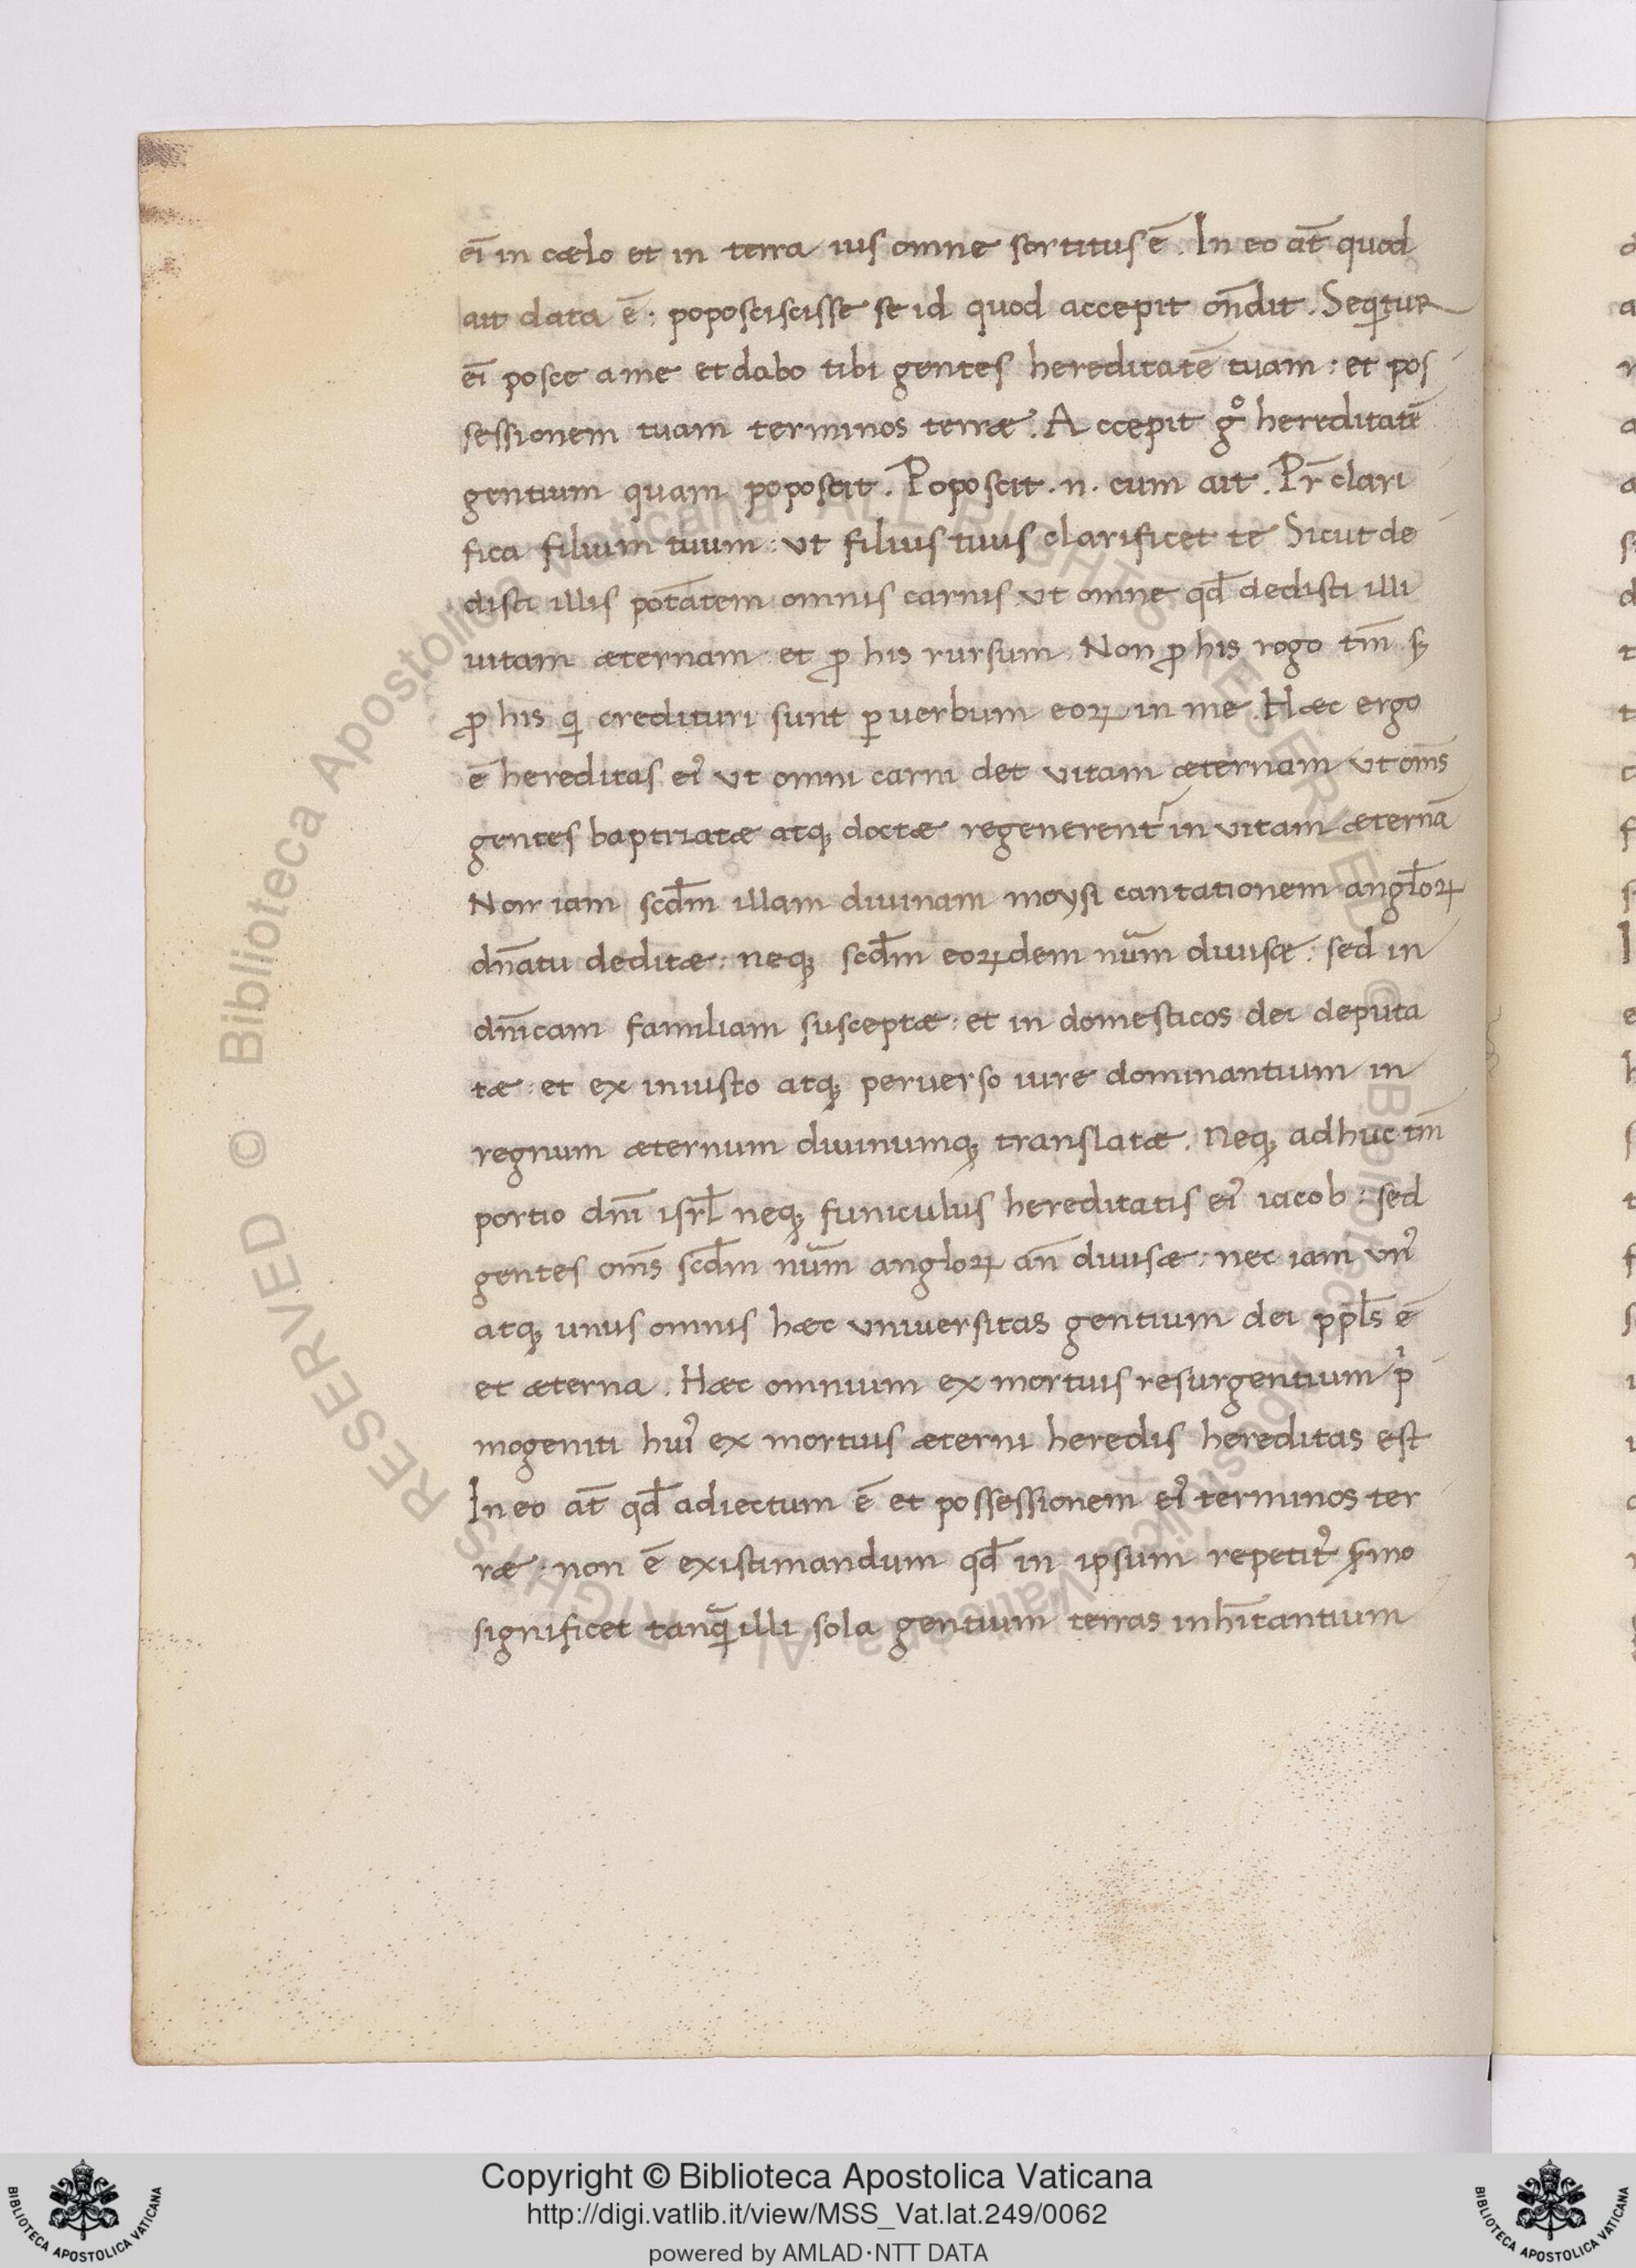 eī in cælo et in terra ius omne sortitus ē. In eo at̄ quod
ait data ē: poposciscisse se id quod accepit on̄dit. Seqitur
eī posce a me et dabo tibi gentes hereditatē tuam: et pos
sessionem tuam terminos terræ. Accepit gͦ hereditatē
gentium quam poposcit. Poposcit .n. cum ait. Pr̄ clari
fica filium tuum: ut filius tuus clarificet te Sicut de
disti illis potatem omnis carnis ut omne qd̄ dedisti illi
uitam æternam et ꝓ his rursum. Non ꝓ his rogo tm̄
ꝓ his qi credituri sunt ꝑ uerbum eoꝝ in me. Hæc ergo
ē hereditas eiꝰ ut omni carni det vitam æternam ut om̄s
gentes baptizatæ atq; doctæ regenerent in vitam æternā
Non iam scd̄m illam diuinam moysi cantationem angl̄oꝝ
dn̄atu deditæ: neq; scd̄m eoꝝdem num̄ diuisæ: sed in
dn̄icam familiam susceptæ: et in domesticos dei deputa
tæ: et ex iniusto atq; peruerso iure dominantium in
regnum æternum diuinumq; translatæ. Neq; adhuc tm̄
portio dn̄i isrl̄ neq; funiculus hereditatis eiꝰ iacob: sed
gentes om̄s scd̄m num̄ angloꝝ an̄ diuisæ: nec iam vnꝰ
atq; unus omnis hæc vniuersitas gentium dei ppl̄s ē
et æterna. Hæc omnium ex mortuis resurgentium pi
mogeniti huiꝰ ex mortuis æterni heredis hereditas est
In eo at̄ qd̄ adiectum ē et possessionem eiꝰ terminos ter
ræ: non ē existimandum qd̄ in ipsum repetit᷑ ẜmo
significet tanq̄ illi sola gentium terras inhītantium
Copyright © Biblioteca Apostolica Vaticana
http://digi.vatlib.it/view/MSS_Vat.lat.249/0062
powered by AMLAD·NTT DATA
BIBLIOTECA APOSTOLICA VATICANA
BIBLIOTECA APOSTOLICA VATICANA
© Biblioteca Apostolica Vaticana ALL RIGHTS RESERVED © Biblioteca Apostolica Vaticana ALL RIGHTS RESERVED